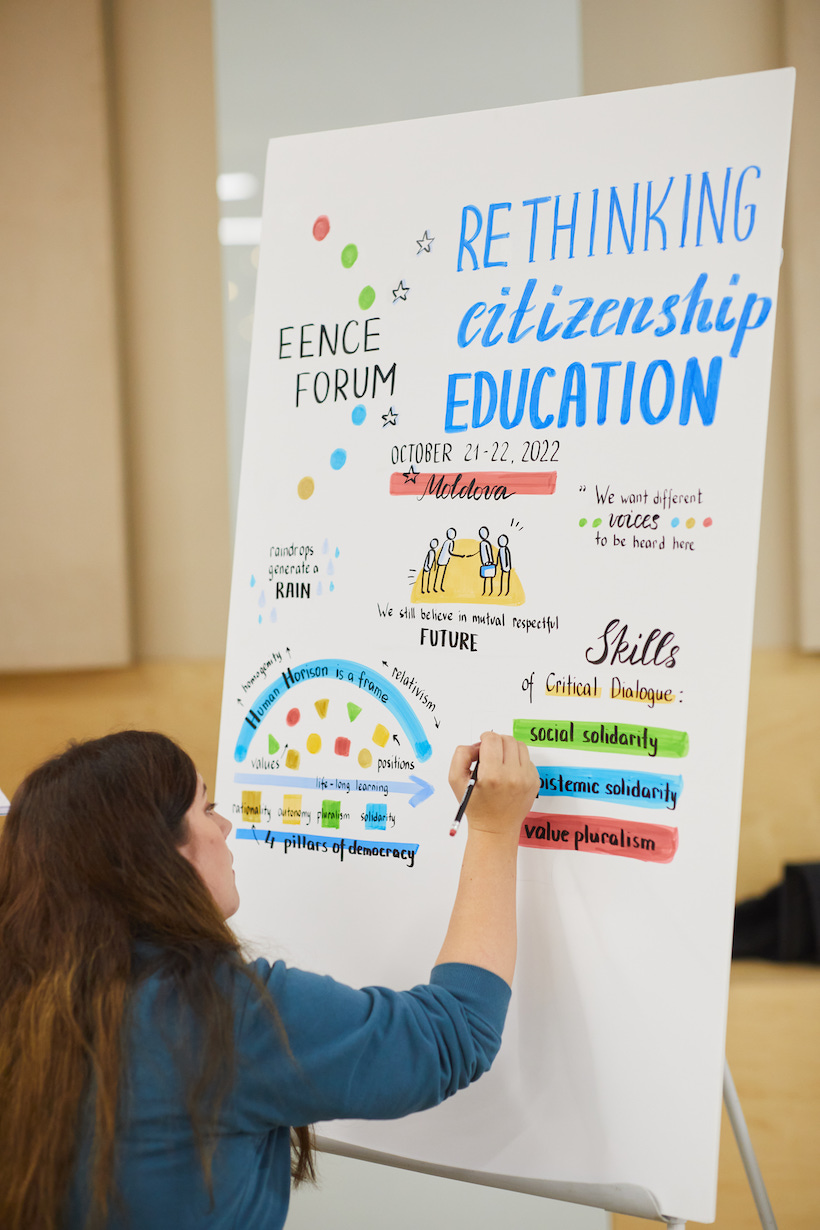 RETHINKING
citizenship
EDUCATION
EENCE
FORUM
OCTOBER 21-22, 2022
Moldova
"We want different
voices
to be heard here
raindrops
generate a
RAIN
We still believe in mutual respectful
FUTURE
Skills
of Critical Dialogue:
social solidarity
pistemic solidarity
value pluralism
homogenity
Human Horison is a frame
relativism
values
positions
life-long learning
rationality autonomy pluralism solidarity
4 pillars of democracy